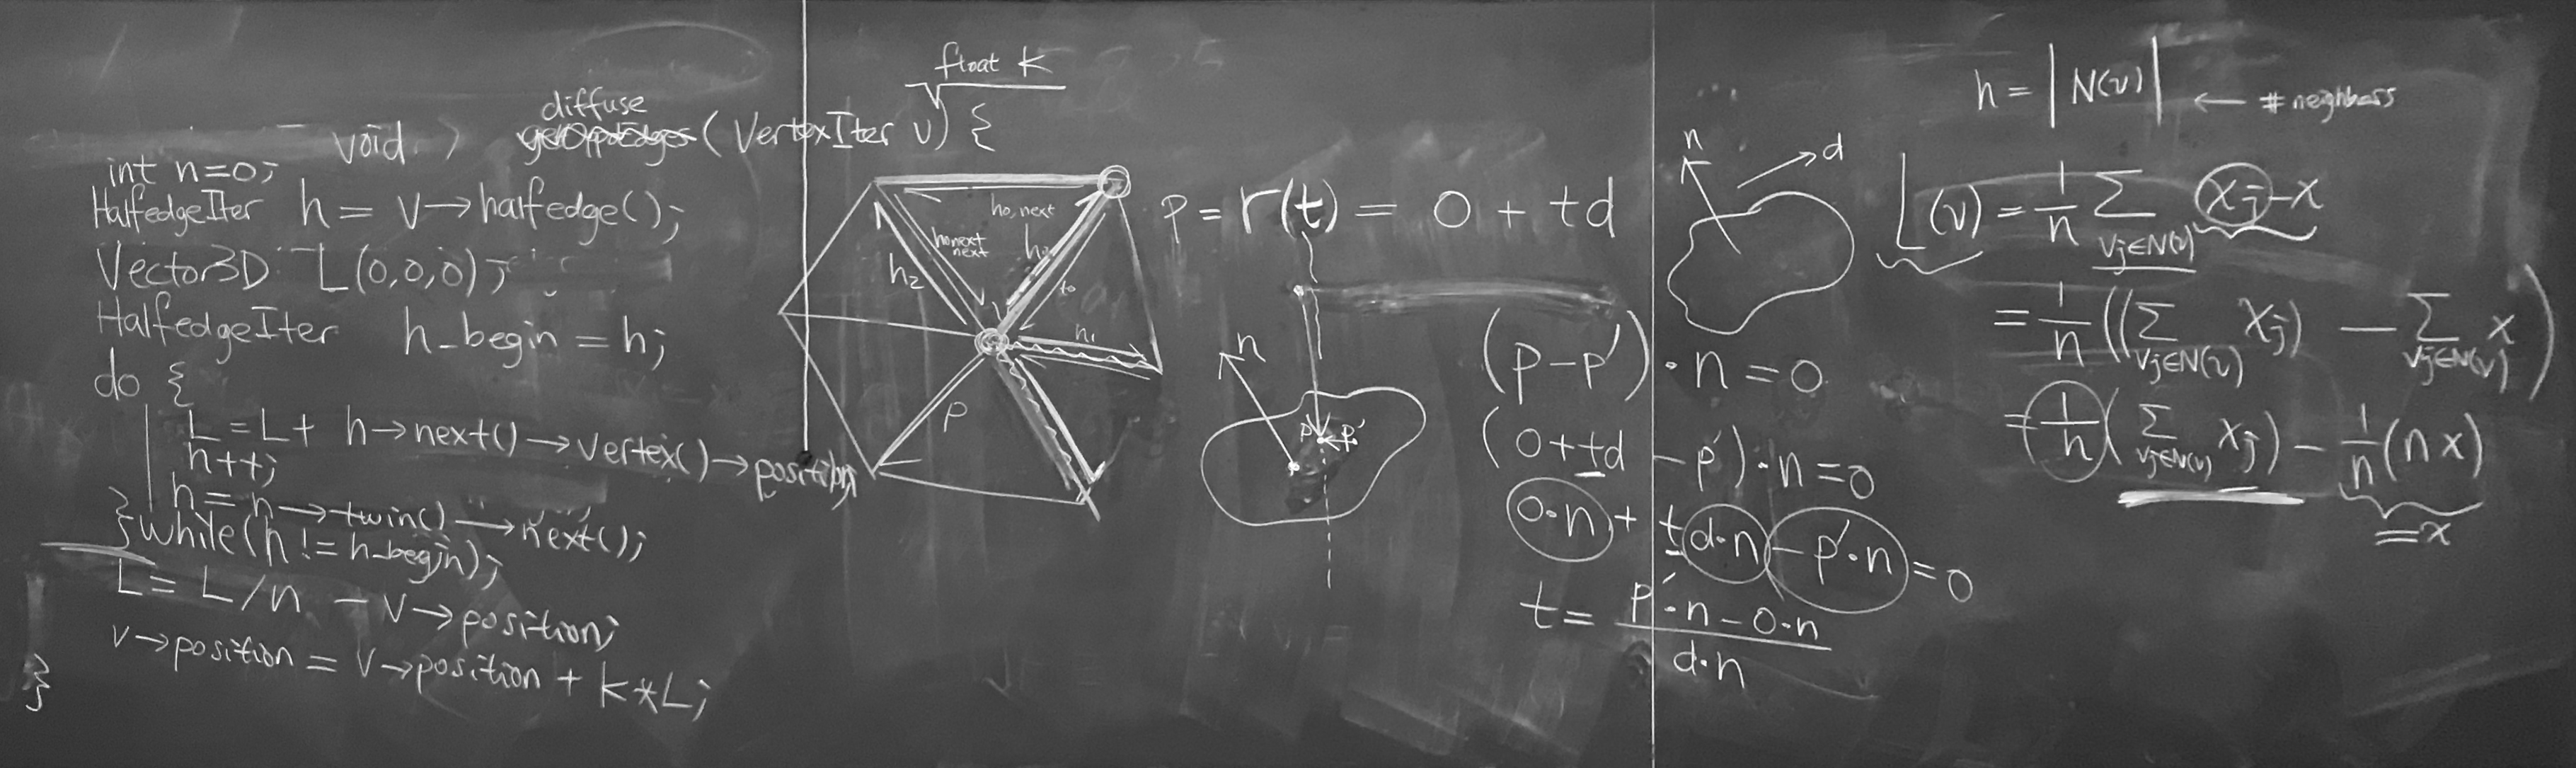 float k
void diffuse getOppEdges (VertexIter v) {
int n=0;
HalfedgeIter h = v→halfedge();
Vector3D L(0,0,0);
HalfedgeIter h_begin = h;
do {
L = L + h→next()→vertex()→position;
n++;
h = h→twin()→next();
} while (h != h_begin);
L = L/n - v→position;
v→position = v→position + k*L;
}
h0,next
h0next next
h2
h1
to
p
p = r(t) = o + td
n
p
p'
(p-p')·n = 0
(o+td - p')·n = 0
o·n + t d·n - p'·n = 0
t = p'·n - o·n / d·n
n
d
n = |N(v)| ← # neighbors
L(v) = 1/n Σ vj∈N(v) xj - x
= 1/n ((Σ vj∈N(v) xj) - Σ vj∈N(v) x)
= 1/n (Σ vj∈N(v) xj) - 1/n (n x)
= x